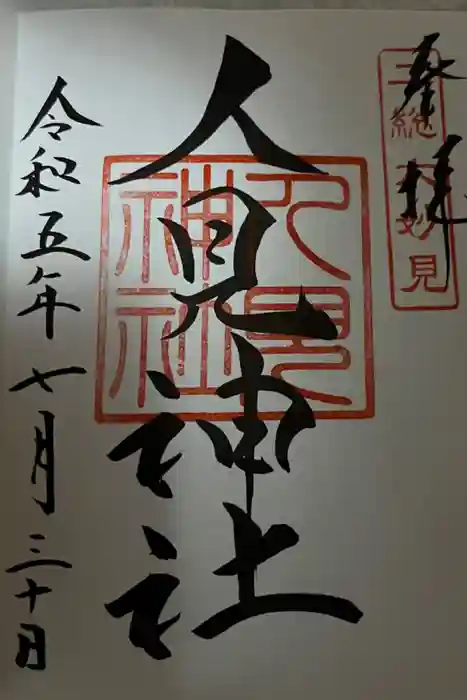 奉拝
三総六妙見
人見神社
人見神社
令和五年七月三十日